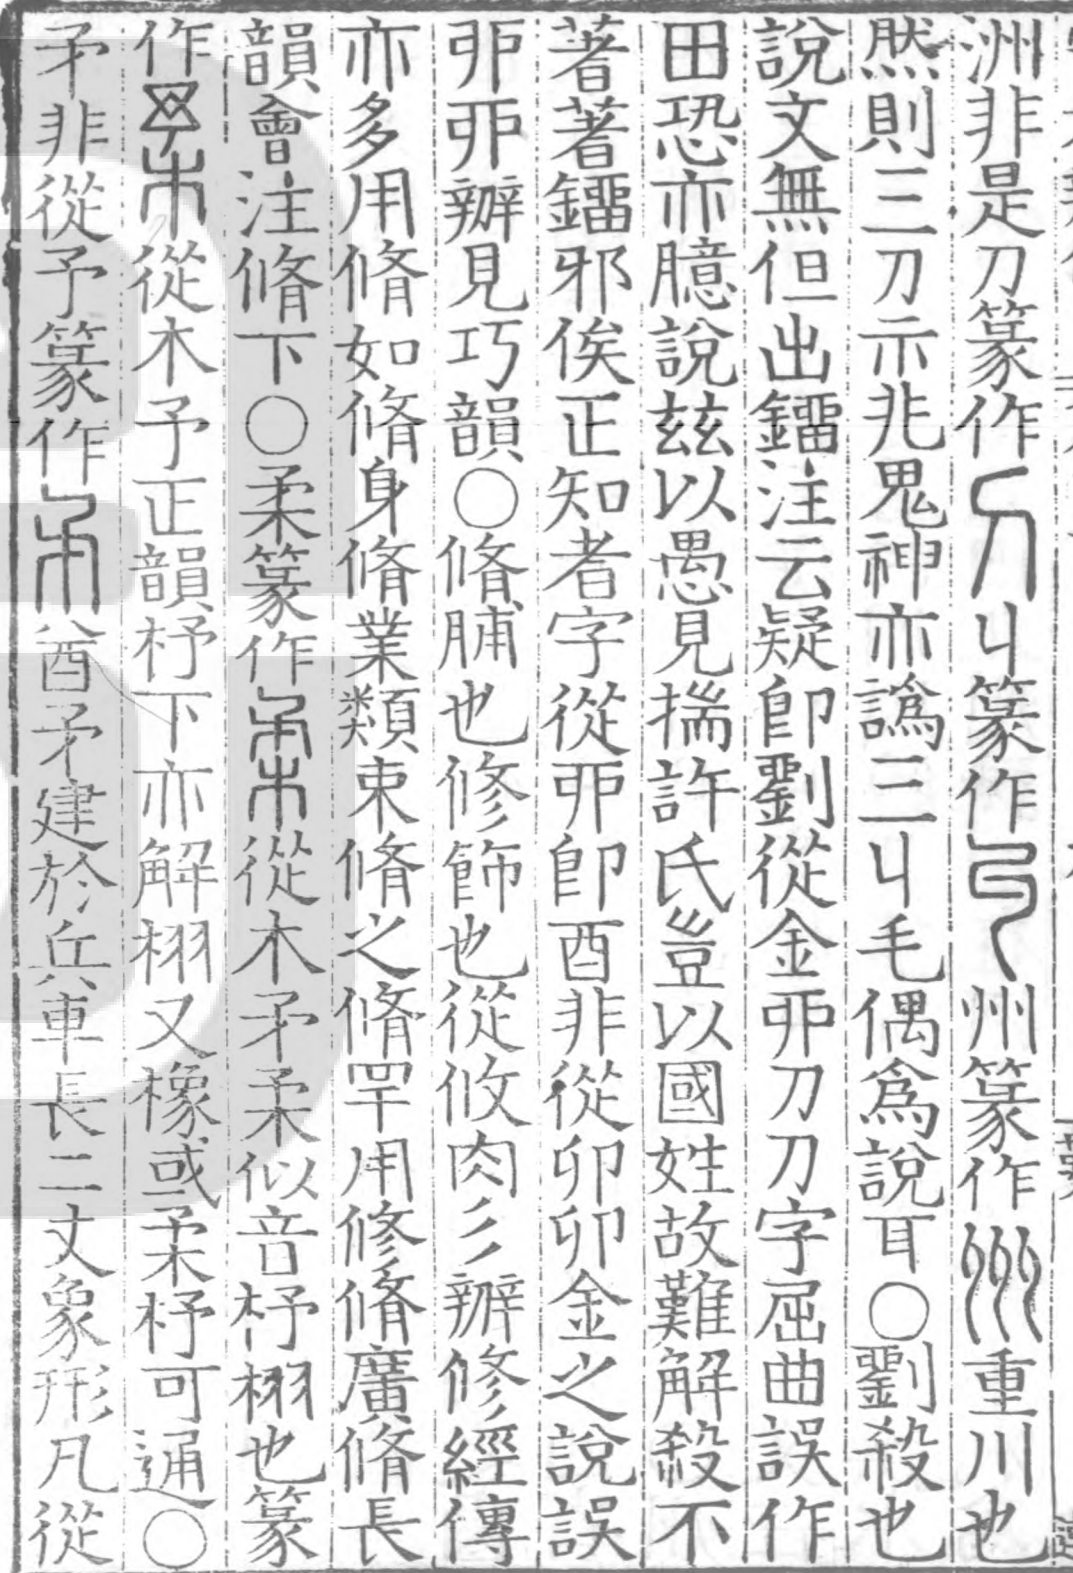 洲非是刀篆作丩篆作州篆作重川也
然則三刀示兆鬼神亦譌三丩毛偶爲說耳○劉殺也
說文無但出鐂注云疑卽劉從金丣刀刀字屈曲誤作
田恐亦臆說玆以愚見揣許氏豈以國姓故難解殺不
著著鐂邪俟正知者字從丣卽酉非從卯卯金之說誤
丣丣辦見巧韻○脩脯也修飾也從攸肉彡辦修經傳
亦多用脩如脩身脩業類束脩之脩罕用修脩廣脩長
韻會注脩下○柔篆作從木矛柔似音杼栩也篆
作從木予正韻杼下亦解栩又橡或柔杼可通○
矛非從予篆作酋矛建於兵車長二丈象形凡從